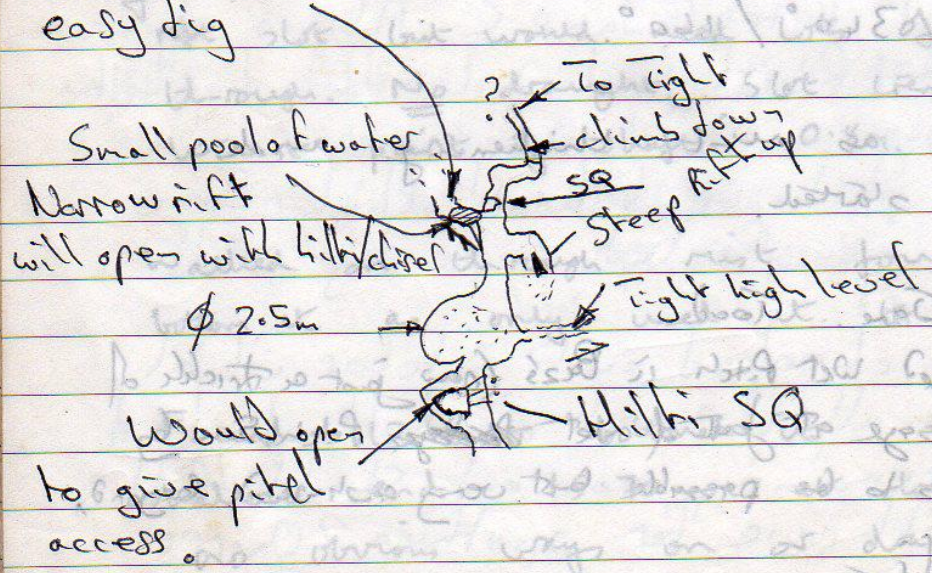 easy dig
? To Tight
climb down
Small pool of water
SQ
Rift up
Narrow rift
Steep
will open with hilti/chisel
Tight high level
ϕ 2.5m
Would open
Hilti SQ
to give pitch
access.